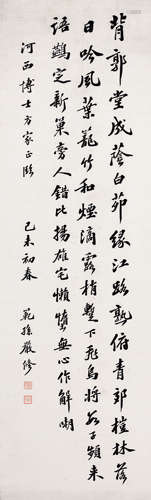 背郭堂成蔭白茆緣江路熟俯青郊榿林
日吟風葉籠竹和煙滴露梢暫下飛烏將數子頻來
語鷰定新巢旁人錯比揚雄宅懶惰無心作解嘲
河西博士方家正
己未初春
範孫嚴修